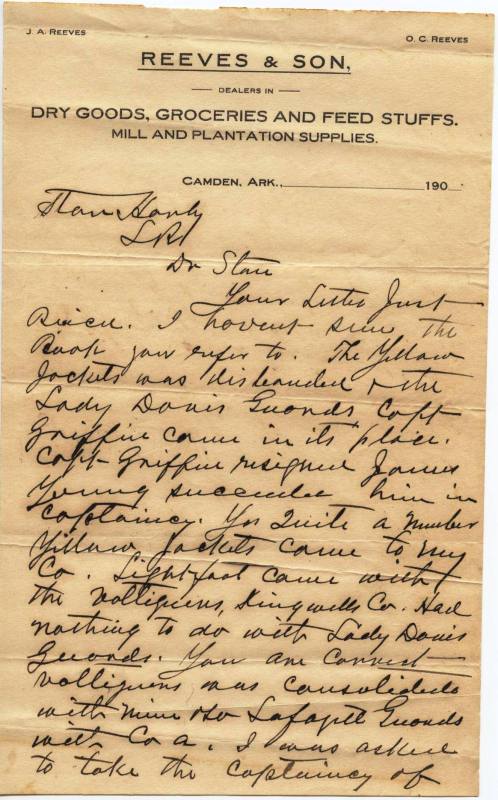 J. A. REEVES
O. C. REEVES
REEVES & SON,
DEALERS IN
DRY GOODS, GROCERIES AND FEED STUFFS.
MILL AND PLANTATION SUPPLIES.
CAMDEN, ARK., 190
Stan Harly
LR
Dr Stan
Your Letter Just
Reicd. I havent seen the
Book you refer to. The Yellow
Jackets was disbanded & the
Lady Davis Guards, Capt
Griffin came in its place.
Capt Griffin resigned James
Young succeeded him in
Captaincy. Yes Quite a number
Yellow Jackets came to my
Co. Lightfoot came with
the Voltiguers, Kingwells Co. Had
nothing to do with Lady Davis
Guards. You are correct
Voltiguers was consolidated
with mine & so Lafayett Guards
with Co A. I was asked
to take the Captaincy of